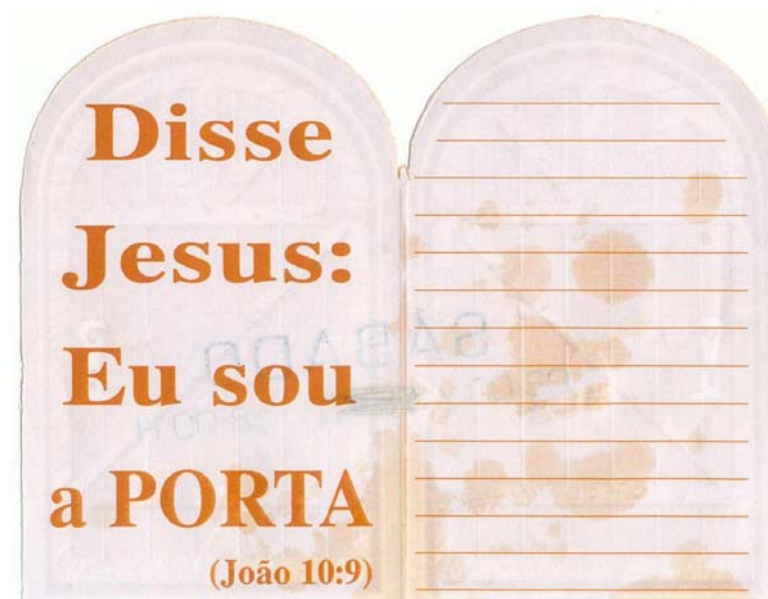 Disse
Jesus:
Eu sou
a PORTA
(João 10:9)
SÁBADO